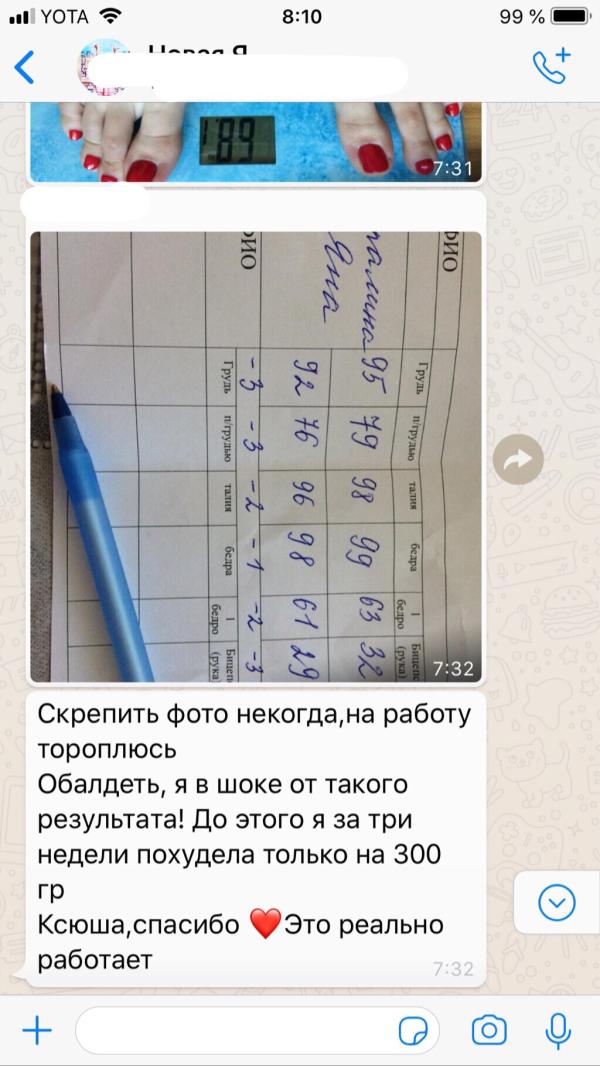 YOTA 8:10 99 %
Новая Я
7:31
ФИО Грудь п/грудью талия бедра 1 бедро Бицепс (рука)
95 79 98 99 63 32
Яна 92 76 96 98 61 29
-3 -3 -2 -1 -2 -3
ФИО Грудь п/грудью талия бедра 1 бедро Бицепс (рука)
7:32
Скрепить фото некогда,на работу
тороплюсь
Обалдеть, я в шоке от такого
результата! До этого я за три
недели похудела только на 300
гр
Ксюша,спасибо ❤️Это реально
работает
7:32